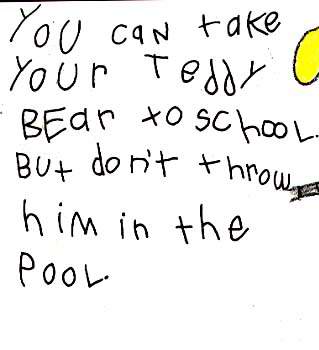 YOU can take
Your Teddy
BEar to SchooL.
BUt don't throw
him in the
PooL.